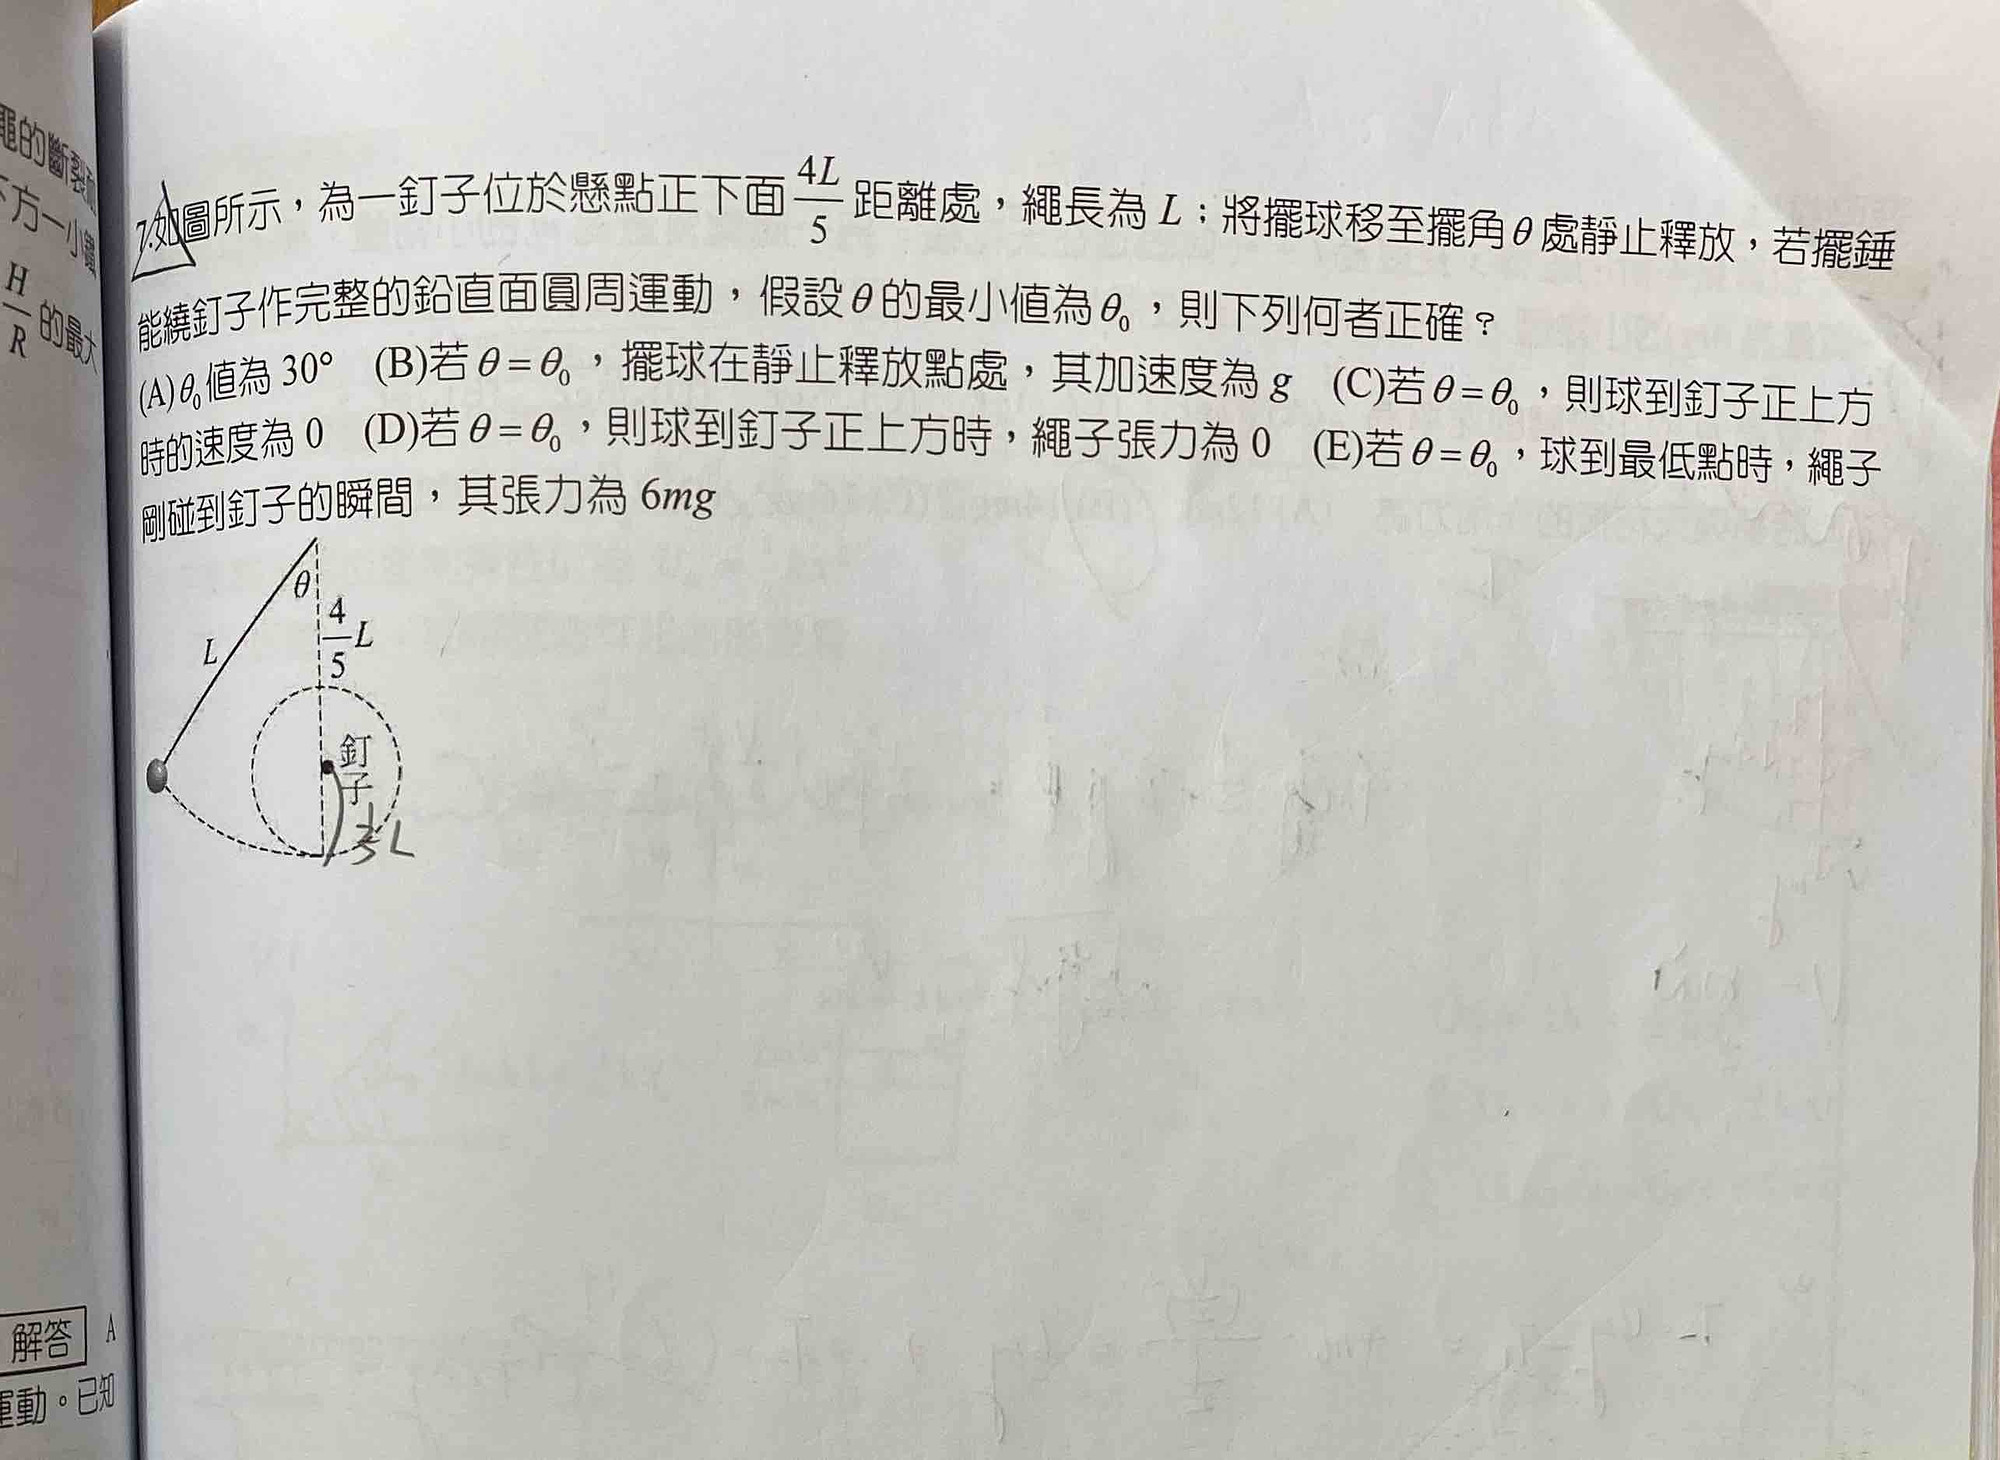 繩的斷裂
下方一小
H
R
的最大
7.如圖所示，為一釘子位於懸點正下面 4L/5 距離處，繩長為 L；將擺球移至擺角 θ 處靜止釋放，若擺錘
能繞釘子作完整的鉛直面圓周運動，假設 θ 的最小值為 θ₀，則下列何者正確？
(A) θ₀ 值為 30° (B)若 θ = θ₀，擺球在靜止釋放點處，其加速度為 g (C)若 θ = θ₀，則球到釘子正上方
時的速度為 0 (D)若 θ = θ₀，則球到釘子正上方時，繩子張力為 0 (E)若 θ = θ₀，球到最低點時，繩子
剛碰到釘子的瞬間，其張力為 6mg
θ
4/5 L
L
釘子
1/5 L
解答 A
運動。已知